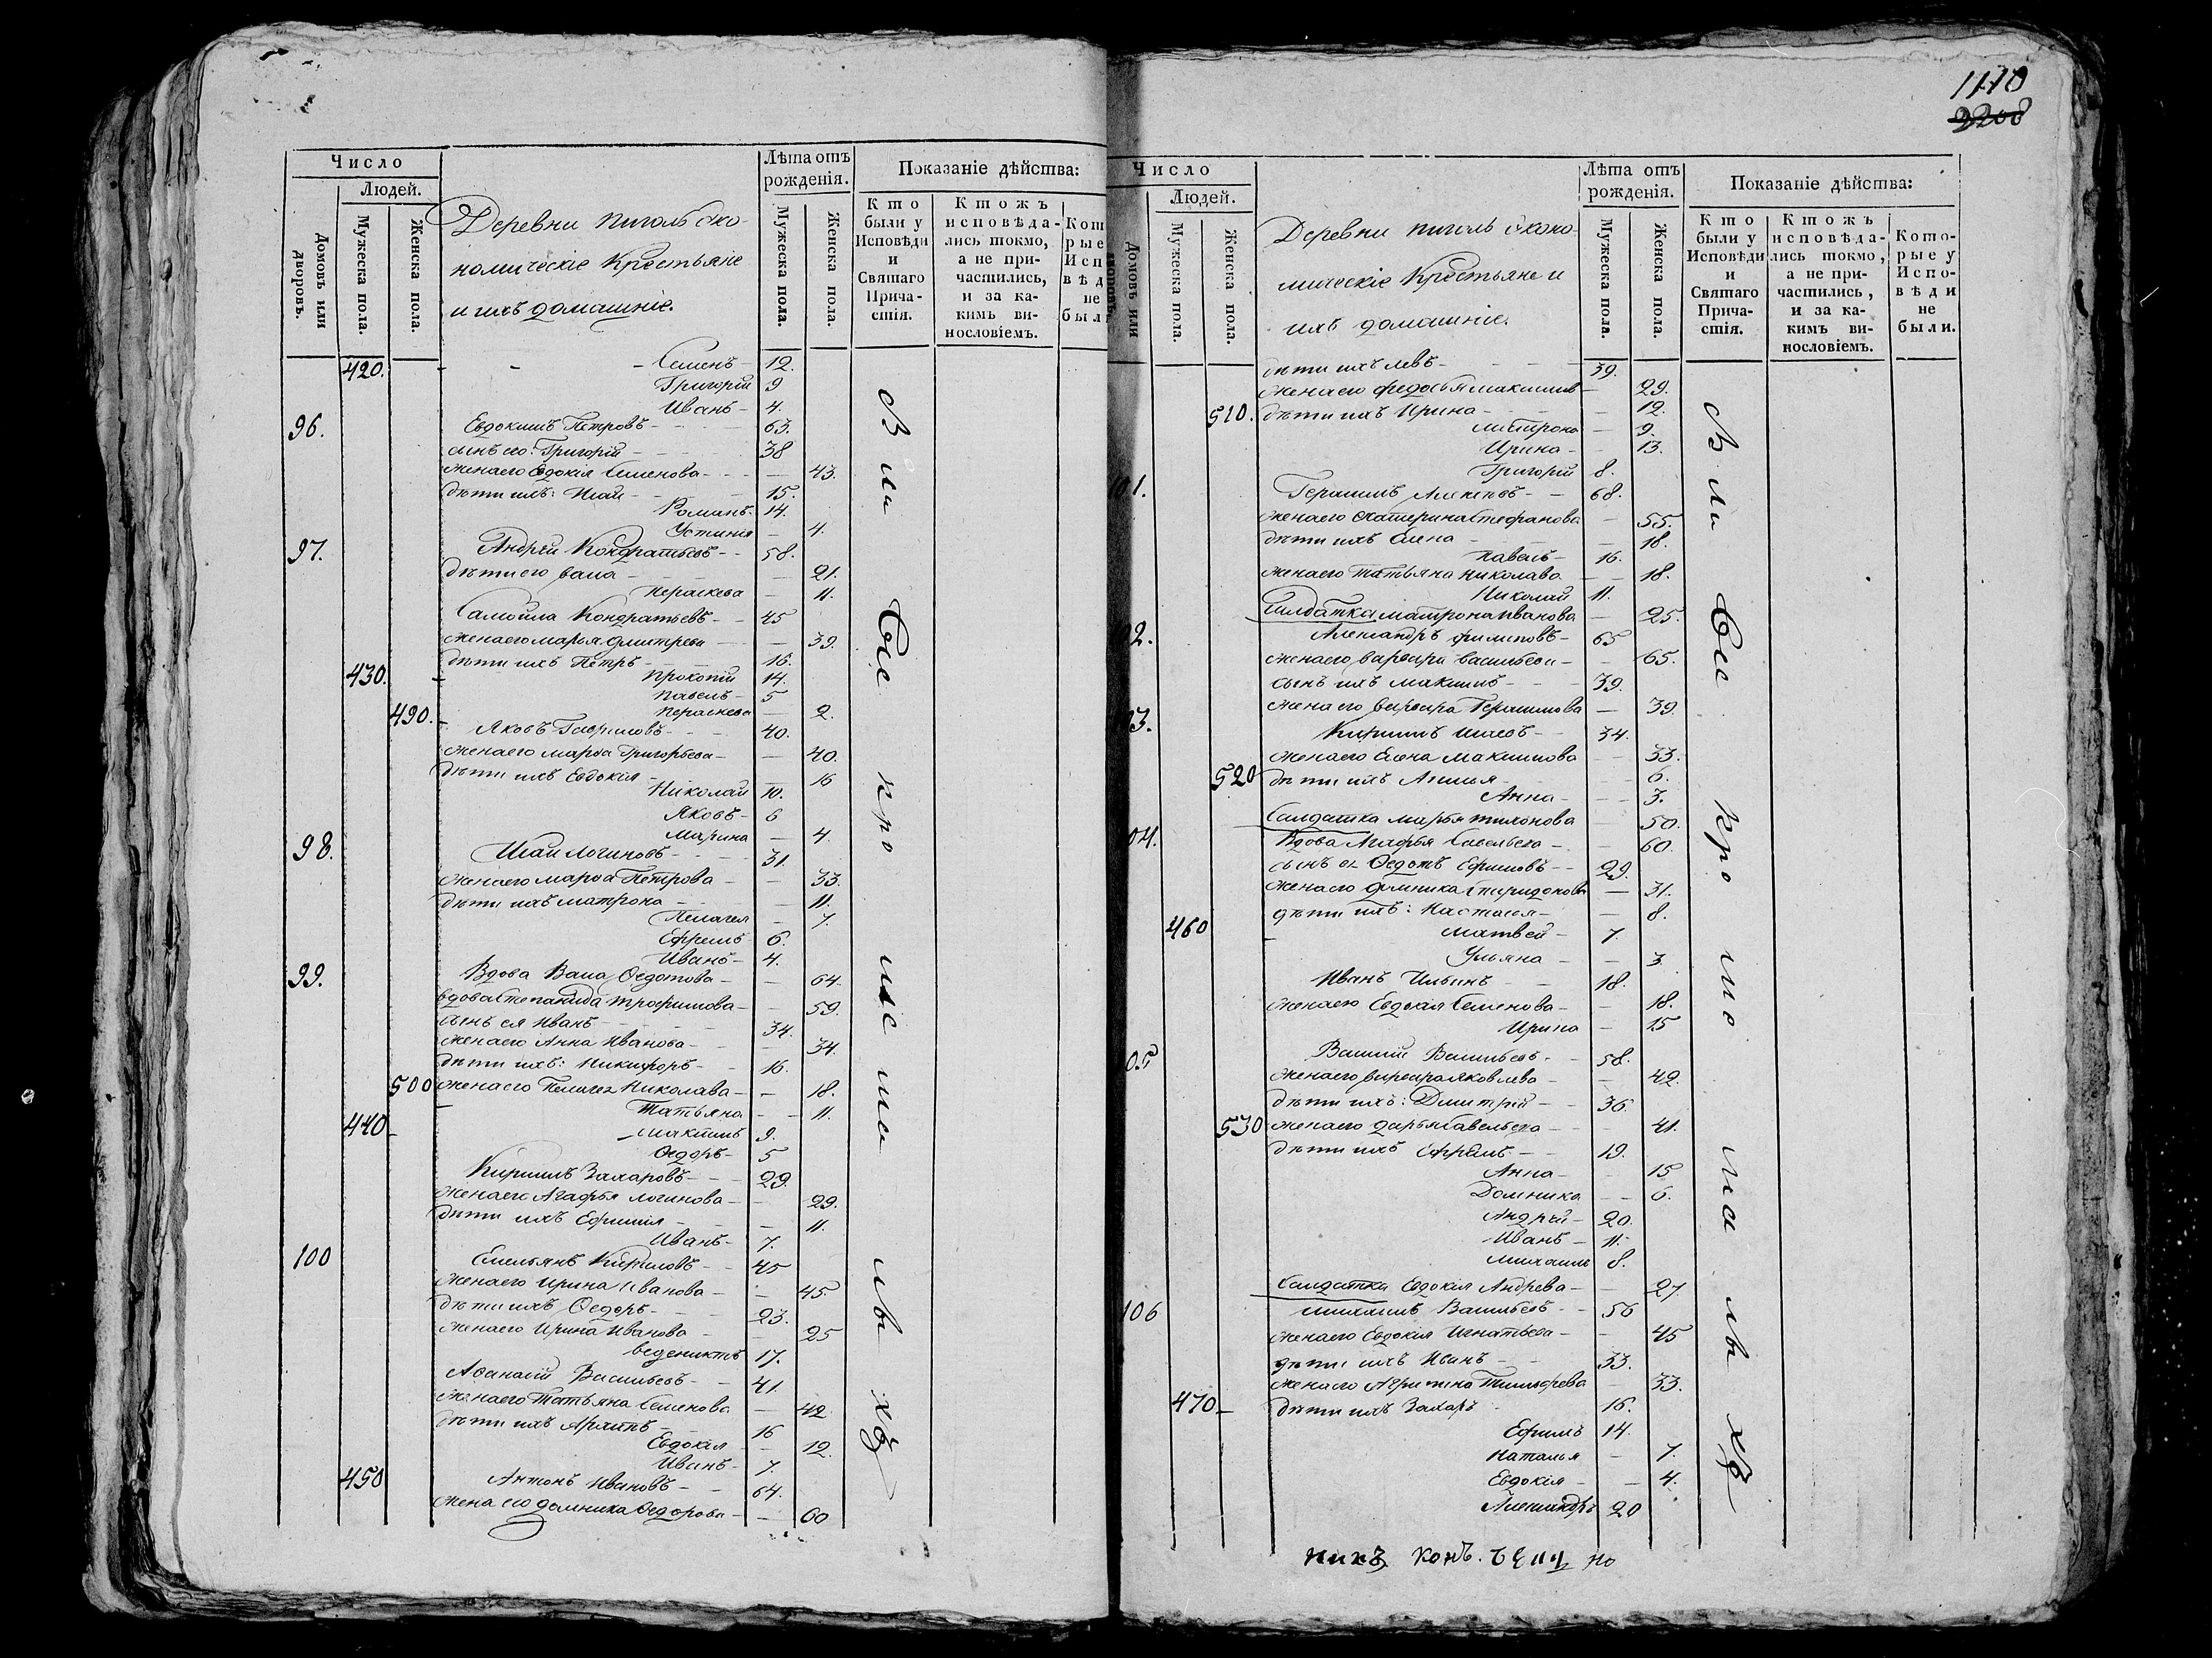 Число
Людей.
Домовъ или дворовъ.
Мужеска пола.
Женска пола.
Деревни пиголь эко-
номическіе Крестьяне
и ихъ домашніе.
Лѣта отъ рожденія.
Мужеска пола.
Женска пола.
Показаніе дѣйства:
Кто были у Исповѣди и Святаго Прича-стія.
Ктожъ исповѣда-лись токмо, а не при-частились, и за ка-кимъ ви-нословіемъ.
420. Семенъ 12.
Григорій 9
Иванъ 4.
96. Евдокимъ Петровъ 63.
сынъ его: Григорій 38
жена его Евдокія Семенова 43.
дѣти ихъ: Исаи 15.
Романъ 14.
Устинія 4.
97. Андрей Кондратьевъ 58.
дѣти его васа 21.
Пераскева 11.
Самоила Кондратьевъ 45
жена его марья дмитрева 39.
дѣти ихъ Петръ 16.
430. Прокопій 14.
Павелъ 5
490. Пераскева 2.
Яковъ Гавриловъ 40.
жена его марфа Григорьева 40.
дѣти ихъ Евдокія 16
Николай 10.
Яковъ 6
Марина 4.
98. Исаи Логиновъ 31.
жена его марфа Петрова 33.
дѣти ихъ матрона 11.
Пелагея 7.
Ефремъ 6.
Иванъ 4.
99. Вдова Васа Ѳедотова 64.
вдова Степанида трофимова 59.
сынъ ея Иванъ 34.
жена его Анна Иванова 34.
дѣти ихъ: Никифоръ 16.
500 жена его Пелагея Николава 18.
Татьяна 11.
440 Максимъ 9.
Ѳедоръ 5
Кирилъ Захаровъ 29.
жена его Агафья логинова 29.
дѣти ихъ Ефимія 11.
Иванъ 7.
100 Емельянъ Кириловъ 45
жена его Ирина Иванова 45
дѣти ихъ Ѳедоръ 23.
жена его Ирина Иванова 25
веденихтъ 17.
Аѳанасій Васильевъ 41.
жена его Татьяна Семенова 42
дѣти ихъ Архипъ 16
Евдокія 12.
Иванъ 7.
450 Антонъ Ивановъ 64.
жена его домника Ѳедорова 60
1110
2208
Число
Людей.
Домовъ или дворовъ.
Мужеска пола.
Женска пола.
Деревни пиголь эконо-
мическіе Крестьяне и
ихъ домашніе.
Лѣта отъ рожденія.
Мужеска пола.
Женска пола.
Показаніе дѣйства:
Кто были у Исповѣди и Святаго Прича-стія.
Ктожъ исповѣда-лись токмо, а не при-частились, и за ка-кимъ ви-нословіемъ.
Кото-рые у Испо-вѣди не были.
дѣти ихъ левъ 39.
жена его федосья максимов 29.
510. дѣти ихъ Ирина 12.
9.
Ирина 13.
Григорій 8.
101. Герасимъ 68.
жена его екатерина стефанова 55.
дѣти ихъ Елена 18.
Павелъ 16.
жена его татьяна николава 18.
Николай 11.
Салдатка матрона иванова 25.
102. Александръ филиповъ 65
жена его варвара васильева 65.
сынъ ихъ максимъ 39.
жена его варвара Герасимова 39.
103. Кирилъ 34.
жена его Елена Максимова 33.
520 дѣти ихъ 6.
Анна 3.
Салдатка марья тихонова 50.
104. Вдова Агафья Савельева 60.
сынъ ея Ѳедотъ Ефимовъ 29.
жена его домника спиридонова 31.
дѣти ихъ: Настасея 8.
460 матвей 7.
Ульяна 3.
Иванъ Ильинъ 18.
жена его Евдокія Семенова 18.
Ирина 15
105 Василій Васильевъ 58.
жена его варвара яковлева 42.
дѣти ихъ: Дмитрій 36.
530 жена его дарья савельева 41.
дѣти ихъ Ефремъ 19.
Анна 15
Домника 6.
Андрей 20.
Иванъ 11.
михаилъ 8.
Салдатка Евдокія Андрева 27
106 михаилъ Васильевъ 56
жена его Евдокія Игнатьева 45
дѣти ихъ Иванъ 33.
жена его Агрипена Тимофева 33.
470 дѣти ихъ Захаръ 16.
Ефимъ 14.
Наталья 7.
Евдокія 4.
Александръ 20